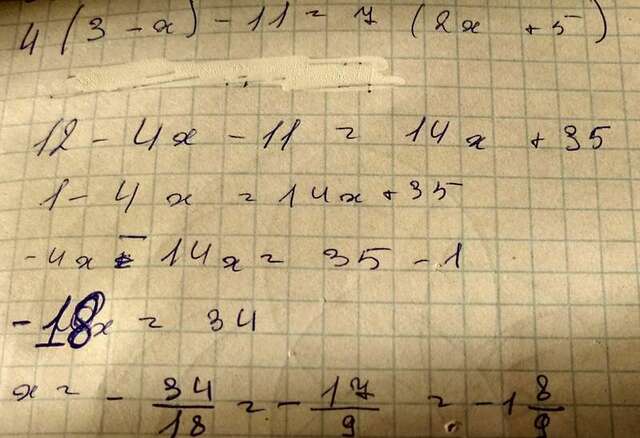 4 (3 - x) - 11 = 7 (2x + 5)
12 - 4x - 11 = 14x + 35
1 - 4x = 14x + 35
-4x - 14x = 35 - 1
-18x = 34
x = - 34/18 = - 17/9 = -1 8/9